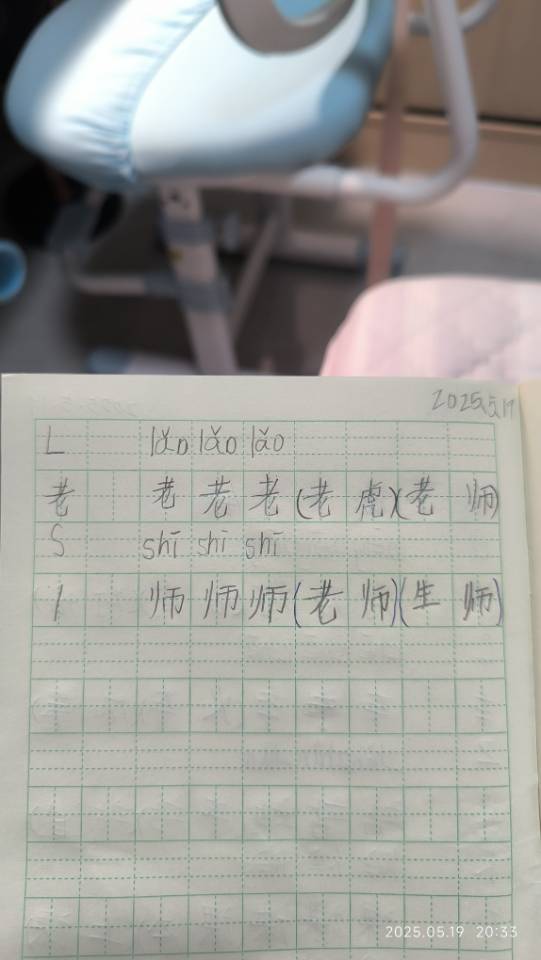 2025.5.19
L lǎo lǎo lǎo
老 老 老 老 (老 虎)(老 师)
S shī shī shī
丿 师 师 师 (老 师)(生 师)
2025.05.19 20:33